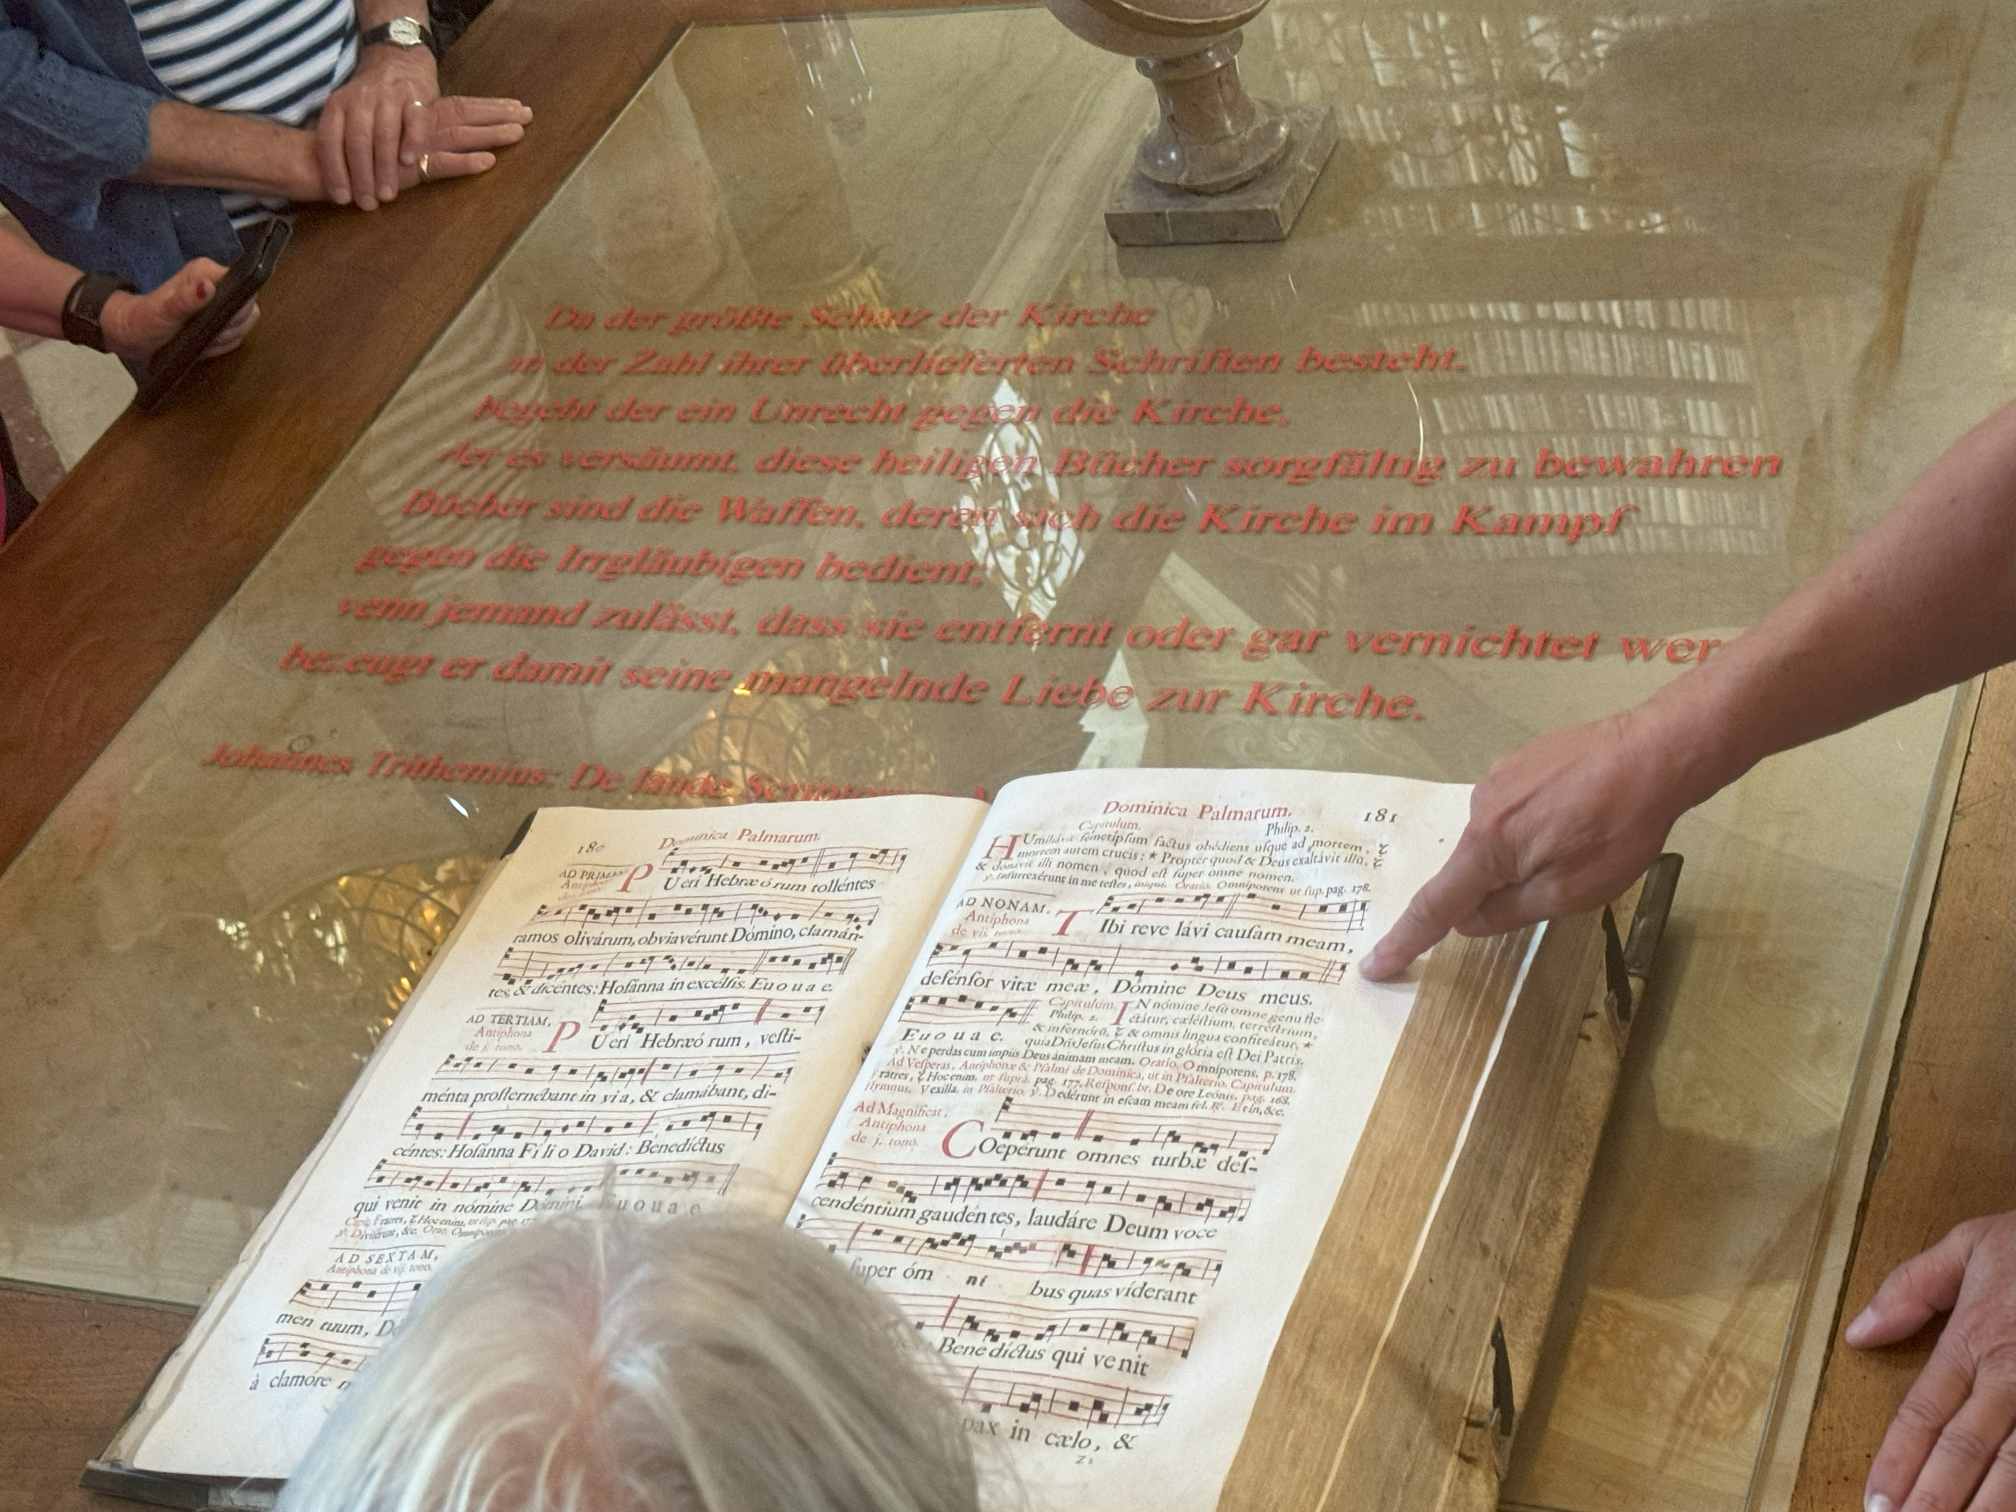 Da der größte Schatz der Kirche
in der Zahl ihrer überlieferten Schriften besteht,
begeht der ein Unrecht gegen die Kirche,
der es versäumt, diese heiligen Bücher sorgfältig zu bewahren
Bücher sind die Waffen, deren sich die Kirche im Kampf
gegen die Irrgläubigen bedient;
wenn jemand zulässt, dass sie entfernt oder gar vernichtet wer
bezeugt er damit seine mangelnde Liebe zur Kirche.
Johannes Trithemius: De laude Scriptorum
180
Dominica Palmarum.
AD PRIMAM
Antiphona
PUeri Hebræórum tolléntes
ramos olivárum, obviavérunt Dómino, clamán-
tes, & dicéntes: Hosánna in excélsis. Euouae.
AD TERTIAM,
Antiphona
de j. tono.
PUeri Hebræórum, vesti-
ménta prosternébant in via, & clamábant, di-
céntes: Hosánna Fílio David: Benedíctus
qui venit in nómine Dómini. Euouae.
AD SEXTAM,
Antiphona de vij. tono.
men tuum,
à clamore
Dominica Palmarum.
181
Capitulum.
Philip. 2.
HUmiliávit semetípsum factus obédiens usque ad mortem,
mortem autem crucis: * Propter quod & Deus exaltávit illū, &
& donávit illi nomen, quod est super omne nomen.
℣. Insurrexérunt in me testes, iníqui. Oratio. Omnípotens ut sup. pag. 178.
AD NONAM,
Antiphona
de vij. tono.
TIbi reve lávi causam meam,
defénsor vitæ meæ, Dómine Deus meus.
Euouae.
Capitulum.
Philip. 2.
IN nómine Jesu omne genu fle-
ctátur, cæléstium, terréstrium,
& infernórū, & omnis lingua confiteátur, *
quia Dñs Jesus Christus in glória est Dei Patris.
℣. Ne perdas cum ímpiis Deus ánimam meam. Oratio. Omnípotens. p. 178.
Ad Vesperas, Antiphonæ & Psalmi de Dominica, ut in Psalterio. Capitulum.
Fratres, & Hoc enim. ut supra. pag. 177. Respons. br. De ore Leónis. pag. 168.
Hymnus. Vexilla. in Psalterio. ℣. Dedérunt in escam meam fel. ℟. Et in, &c.
Ad Magnificat,
Antiphona
de j. tono.
COepérunt omnes turbæ des-
cendéntium gaudéntes, laudáre Deum voce
super óm ni bus quas víderant
Benedíctus qui venit
pax in cælo, &